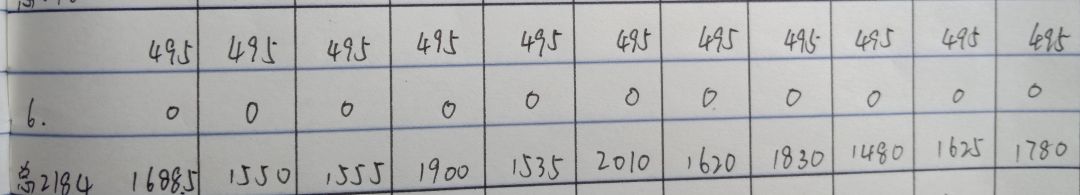 495 495 495 495 495 495 495 495 495 495 495
6. 0 0 0 0 0 0 0 0 0 0 0
总2184 16885 1550 1555 1900 1535 2010 1620 1830 1480 1625 1780